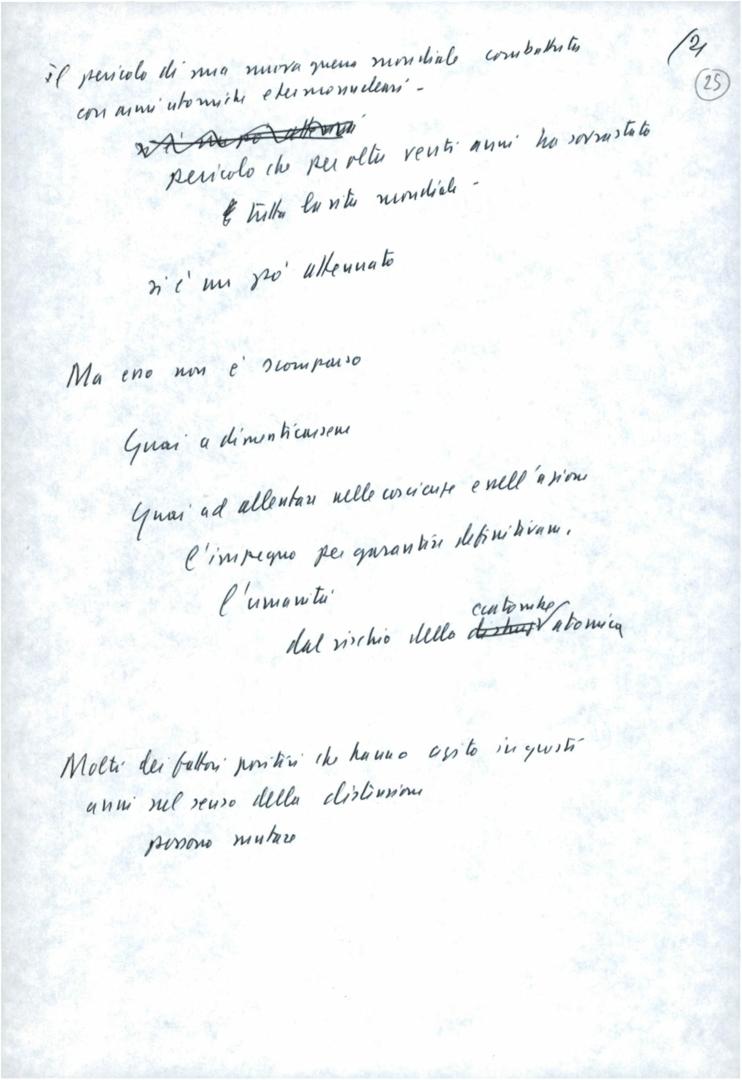 /2
25
il pericolo di una nuova guerra mondiale combattuta
con armi atomiche e termonucleari -
si è un po' attenuato
pericolo che per oltre venti anni ha sovrastato
tutta la vita mondiale -
si è un po' attenuato
Ma esso non è scomparso
Guai a dimenticarsene
Guai ad allentare nelle coscienze e nell'azione
l'impegno per garantire definitivam.
l'umanità
catastrofe
dal rischio della atomica
Molti dei fattori positivi che hanno agito in questi
anni nel senso della distensione
possono mutare